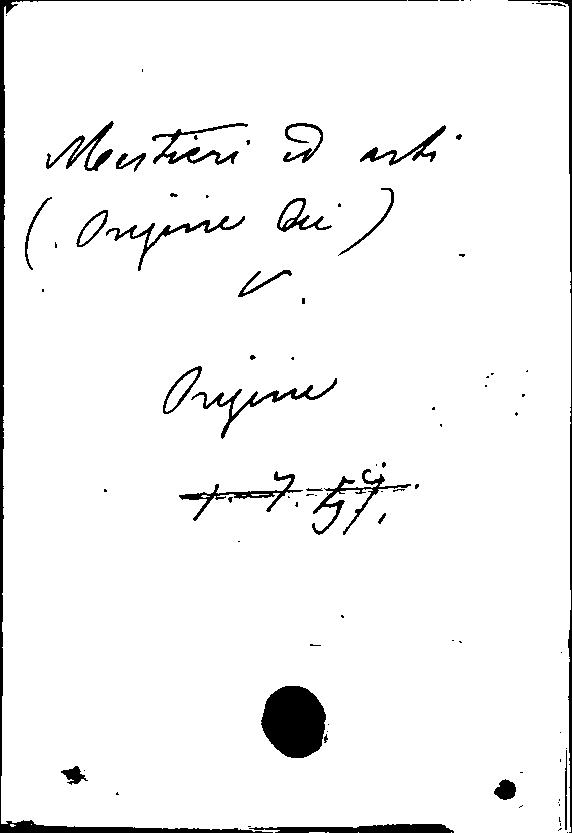 Mestieri ed arti
(Origine dei)
V.
Origine